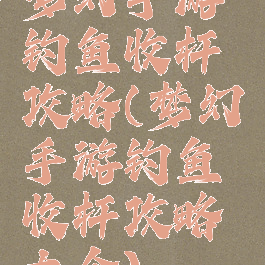 梦幻手游
钓鱼收杆
攻略(梦幻
手游钓鱼
收杆攻略
大全)